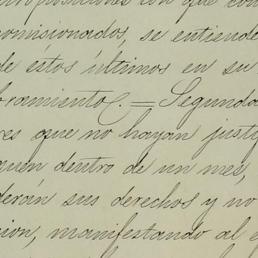 proposiciones con que con
comisionados, se entiende
de éstos últimos en su
bramiento. = Segunda
es que no hayan justi
quen dentro de un mes,
derán sus derechos y no
cion, manifestando al